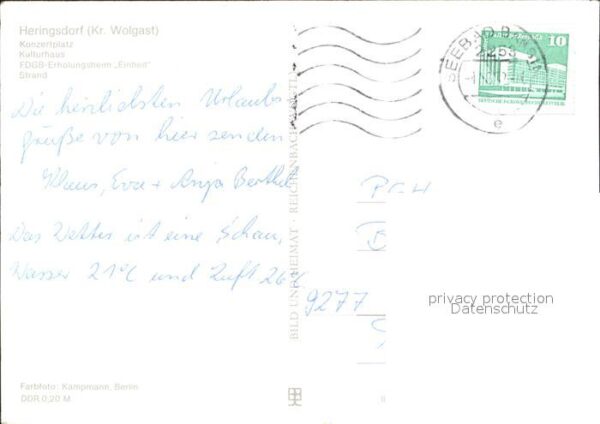 Heringsdorf (Kr. Wolgast)
Konzertplatz
Kulturhaus
FDGB-Erholungsheim „Einheit“
Strand
Die herzlichsten Urlaubs
grüße von hier senden
Klaus, Eva + Anja Berthel
Das Wetter ist eine Schau,
Wasser 21°C und Luft 26°C
Farbfoto: Kampmann, Berlin
DDR 0,20 M
BILD UND HEIMAT · REICHENBACH
SEEBAD BANSIN
2253
e
10
PGH
B
9277
privacy protection
Datenschutz